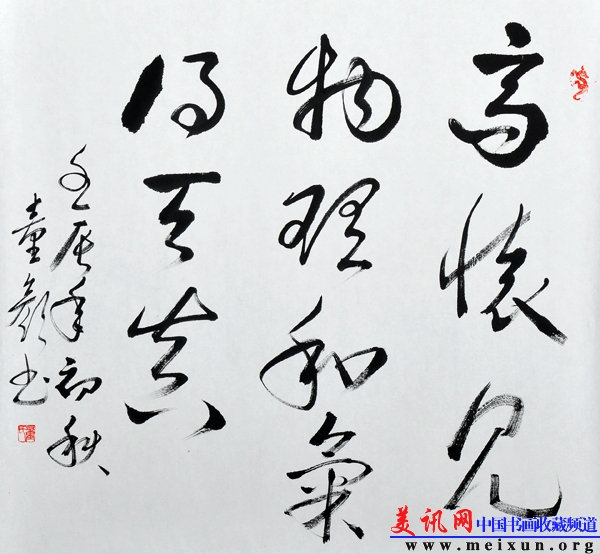 高懷見
物理和氣
得天真
壬辰年初秋
童彥書
美讯网 中国书画收藏频道
www.meixun.org